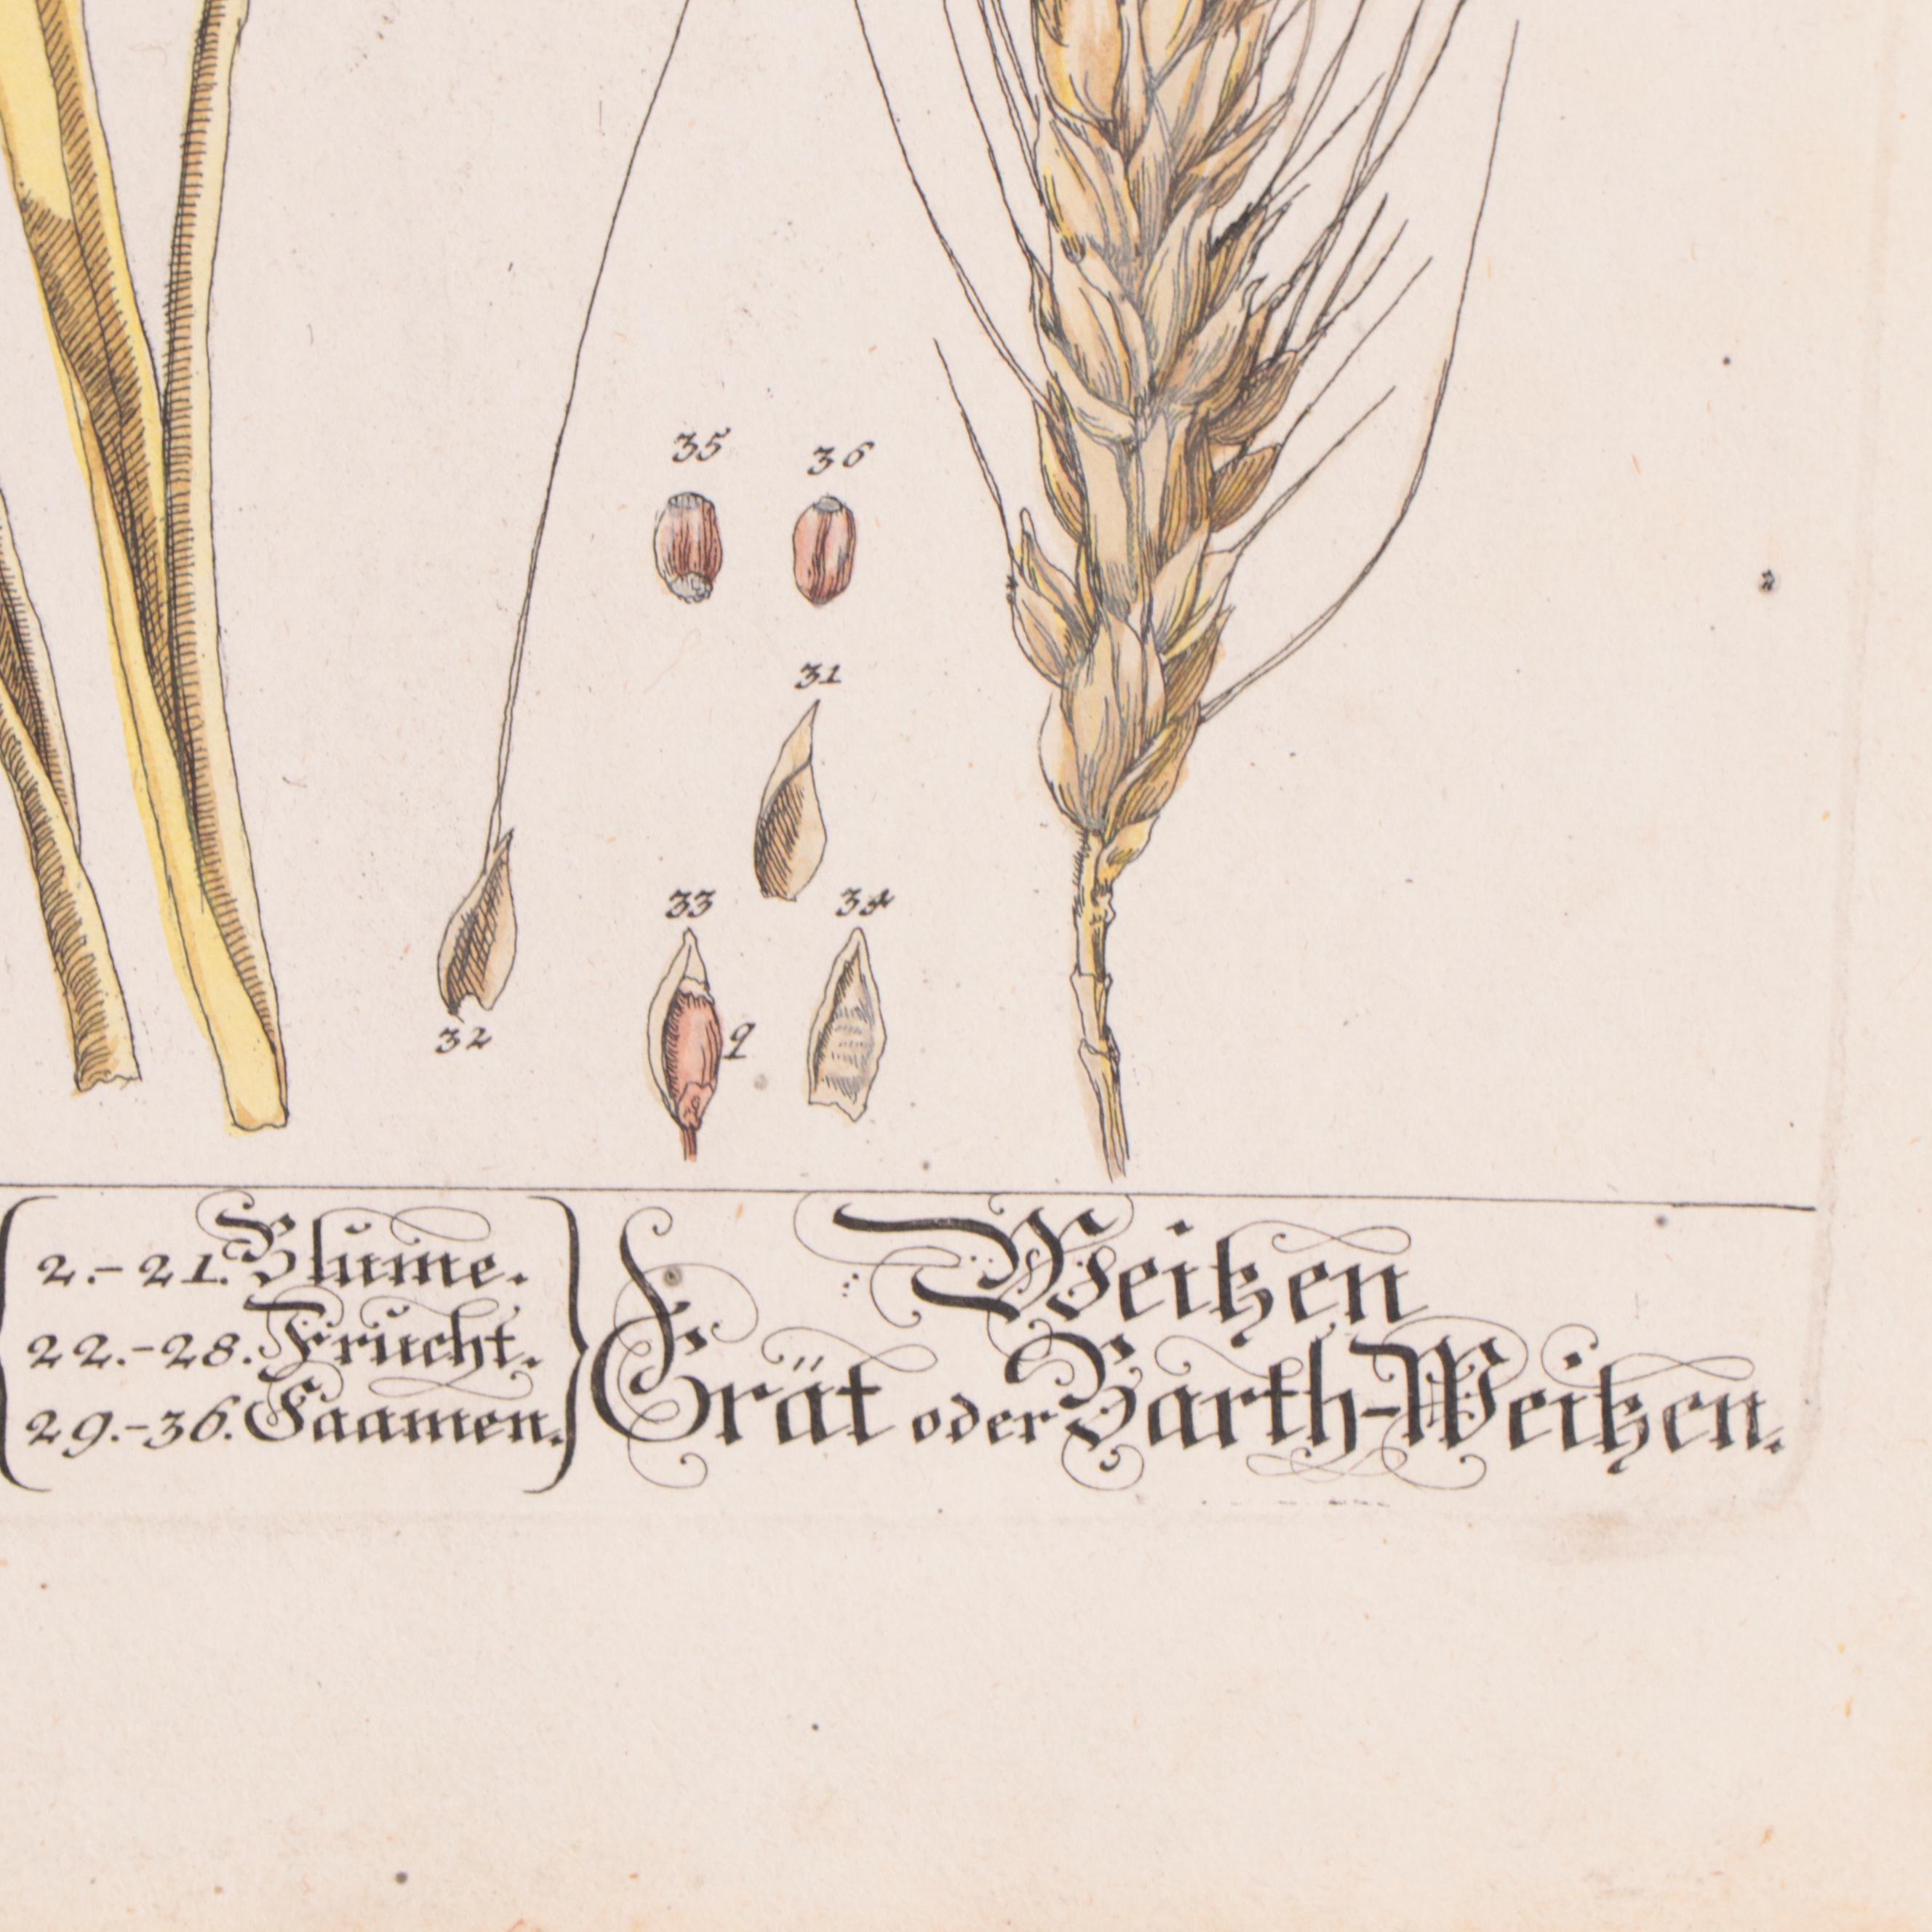 35 36
31
33 34
32 q
2.-21. Blŭme.
22.-28. Frŭcht.
29.-36. Saamen.
Weitzen
Grät oder Barth-Weitzen.